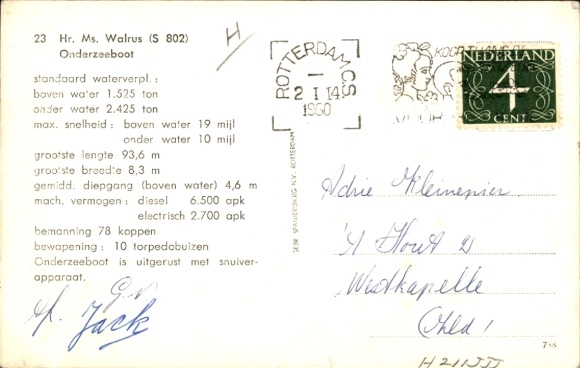 23 Hr. Ms. Walrus (S 802)
Onderzeeboot
standaard waterverpl.:
boven water 1.525 ton
onder water 2.425 ton
max. snelheid: boven water 19 mijl
onder water 10 mijl
grootste lengte 93,6 m
grootste breedte 8,3 m
gemidd. diepgang (boven water) 4,6 m
mach. vermogen: diesel 6.500 apk
electrisch 2.700 apk
bemanning 78 koppen
bewapening: 10 torpedobuizen
Onderzeeboot is uitgerust met snuiver-
apparaat.
G.N.
Jack
H
ROTTERDAM CS
2 I 14
1960
VOOR
NEDERLAND
4
CENT
GEBR. SPANJERSBERG N.V., ROTTERDAM
Adrie Kleinepier
't Hout 2
Westkapelle